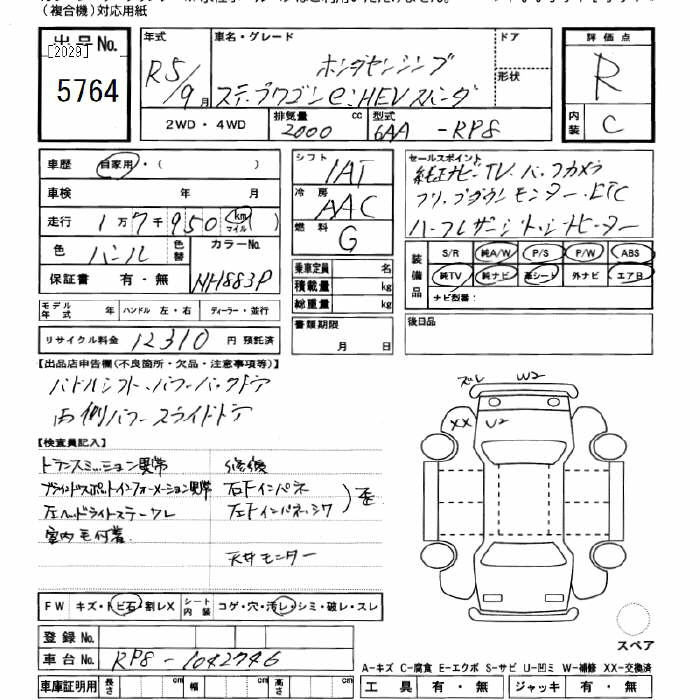 (複合機)対応用紙
出品No.
[2029]
5764
年式 R5/9月
車名・グレード
ホンダセンシング
ステップワゴンe:HEVスパーダ
ドア
形状
評価点
R
内装 C
2WD・4WD
排気量 2000 cc
型式 6AA -RP8
車歴 自家用・( )
車検 年 月
走行 1万7千950 km マイル
色 パール 色替 カラーNo. NH883P
保証書 有・無
シフト IAT
冷房 AAC
燃料 G
乗車定員 名
積載量 kg
総重量 kg
セールスポイント
純正ナビTV.バックカメラ
フリップダウンモンター.ETC
ハーフレザーシート.シートヒーター
装備品
S/R 純A/W P/S P/W ABS
純TV 純ナビ 革シート 外ナビ エアB
ナビ型番:
モデル年式 年 ハンドル 左・右 ディーラー・並行
リサイクル料金 12310 円 預託済
書類期限
月 日
後日品
【出品店申告欄(不良箇所・欠品・注意事項等)】
パドルシフト.パワーバックドア
両側パワースライドドア
【検査員記入】
トランスミッション異常 修復
ブラインドスポットインフォーメーション異常 右Fインパネ
左ヘッドライトステークレ 左Fインパネ.シワ
) 歪
室内毛付着
天井モニター
ズレ W2
XX U2
FW キズ・トビ石・割レX シート内装 コゲ・穴・汚レ・シミ・破レ・スレ
登録No.
車台No. RP8-1042746
スペア
A-キズ C-腐食 E-エクボ S-サビ U-凹ミ W-補修 XX-交換済
車庫証明用 長さ cm 幅 cm 高さ cm
工具 有・無 ジャッキ 有・無